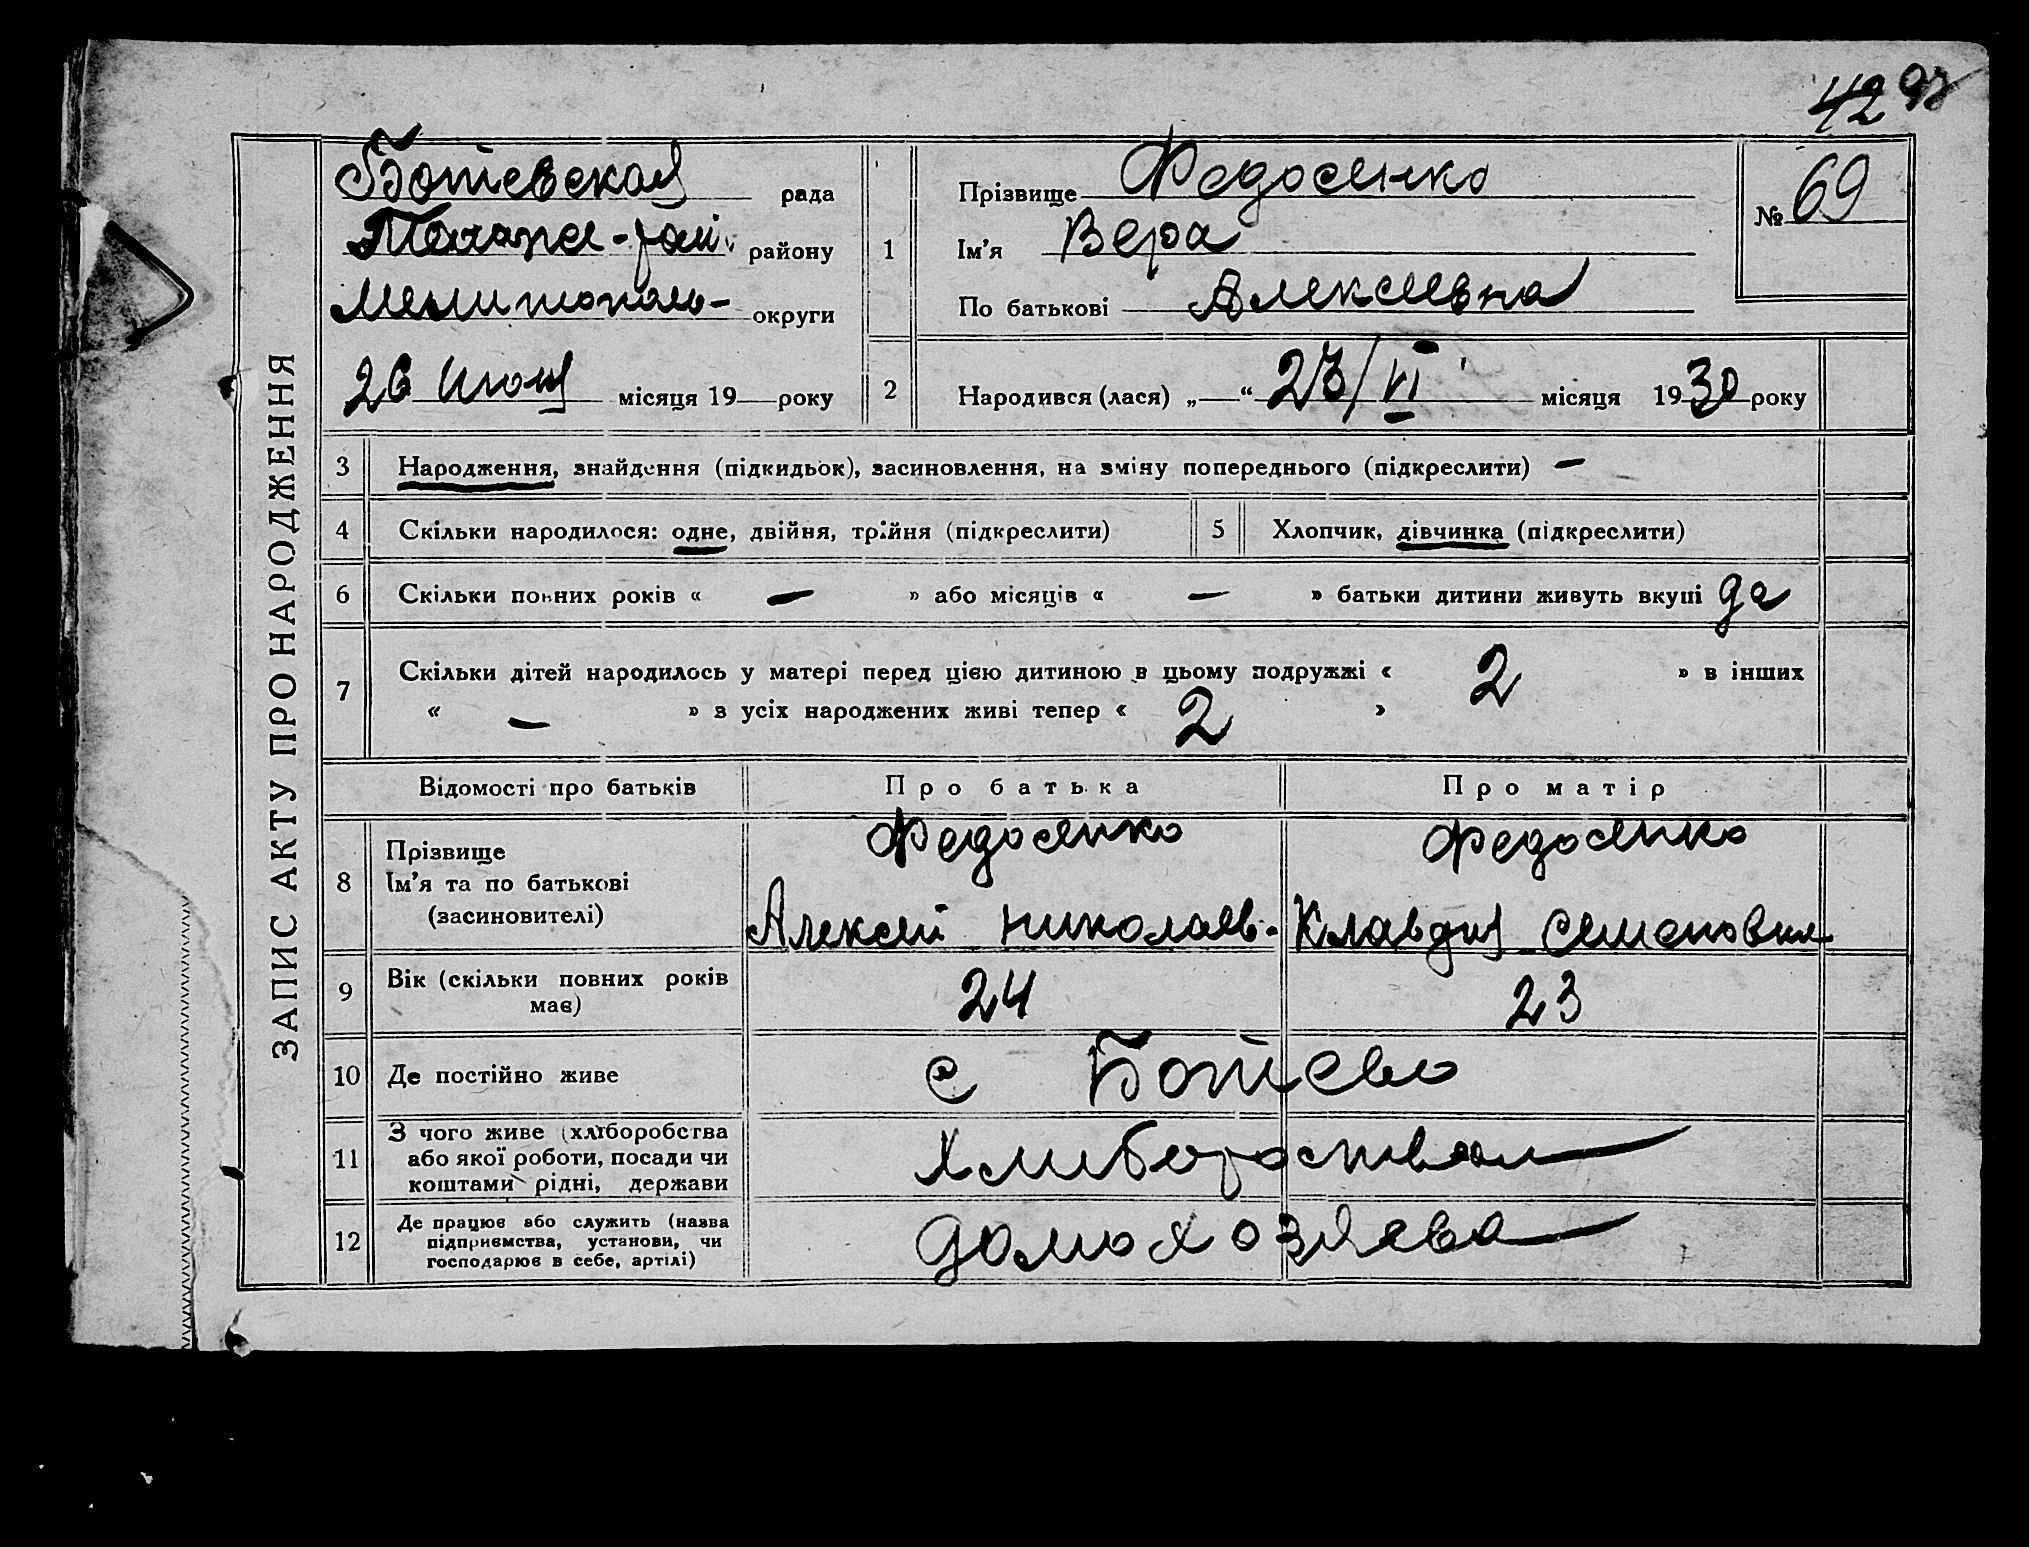 42 97
ЗАПИС АКТУ ПРО НАРОДЖЕННЯ
Ботиевская рада
району
Мелитополь- округи
26 июня місяця 19 року
1
Прізвище Федосенко
Ім'я Вера
По батькові Алексеевна
№ 69
2 Народився (лася) „ “ 23/VI місяця 1930 року
3 Народження, знайдення (підкидьок), засиновлення, на зміну попереднього (підкреслити) —
4 Скільки народилося: одне, двійня, трійня (підкреслити) 5 Хлопчик, дівчинка (підкреслити)
6 Скільки повних років « — » або місяців « — » батьки дитини живуть вкупі да
7 Скільки дітей народилось у матері перед цією дитиною в цьому подружжі « 2 » в інших
« — » з усіх народжених живі тепер « 2 »
Відомості про батьків Про батька Про матір
8 Прізвище Федосенко Федосенко
Ім'я та по батькові
(засиновителі) Алексей Николаев- Клавдия Семеновна
9 Вік (скільки повних років
має) 24 23
10 Де постійно живе с Ботиево
11 З чого живе (хліборобства
або якої роботи, посади чи
коштами рідні, держави
12 Де працює або служить (назва
підприємства, установи, чи
господарює в себе, артілі)
домохозяева